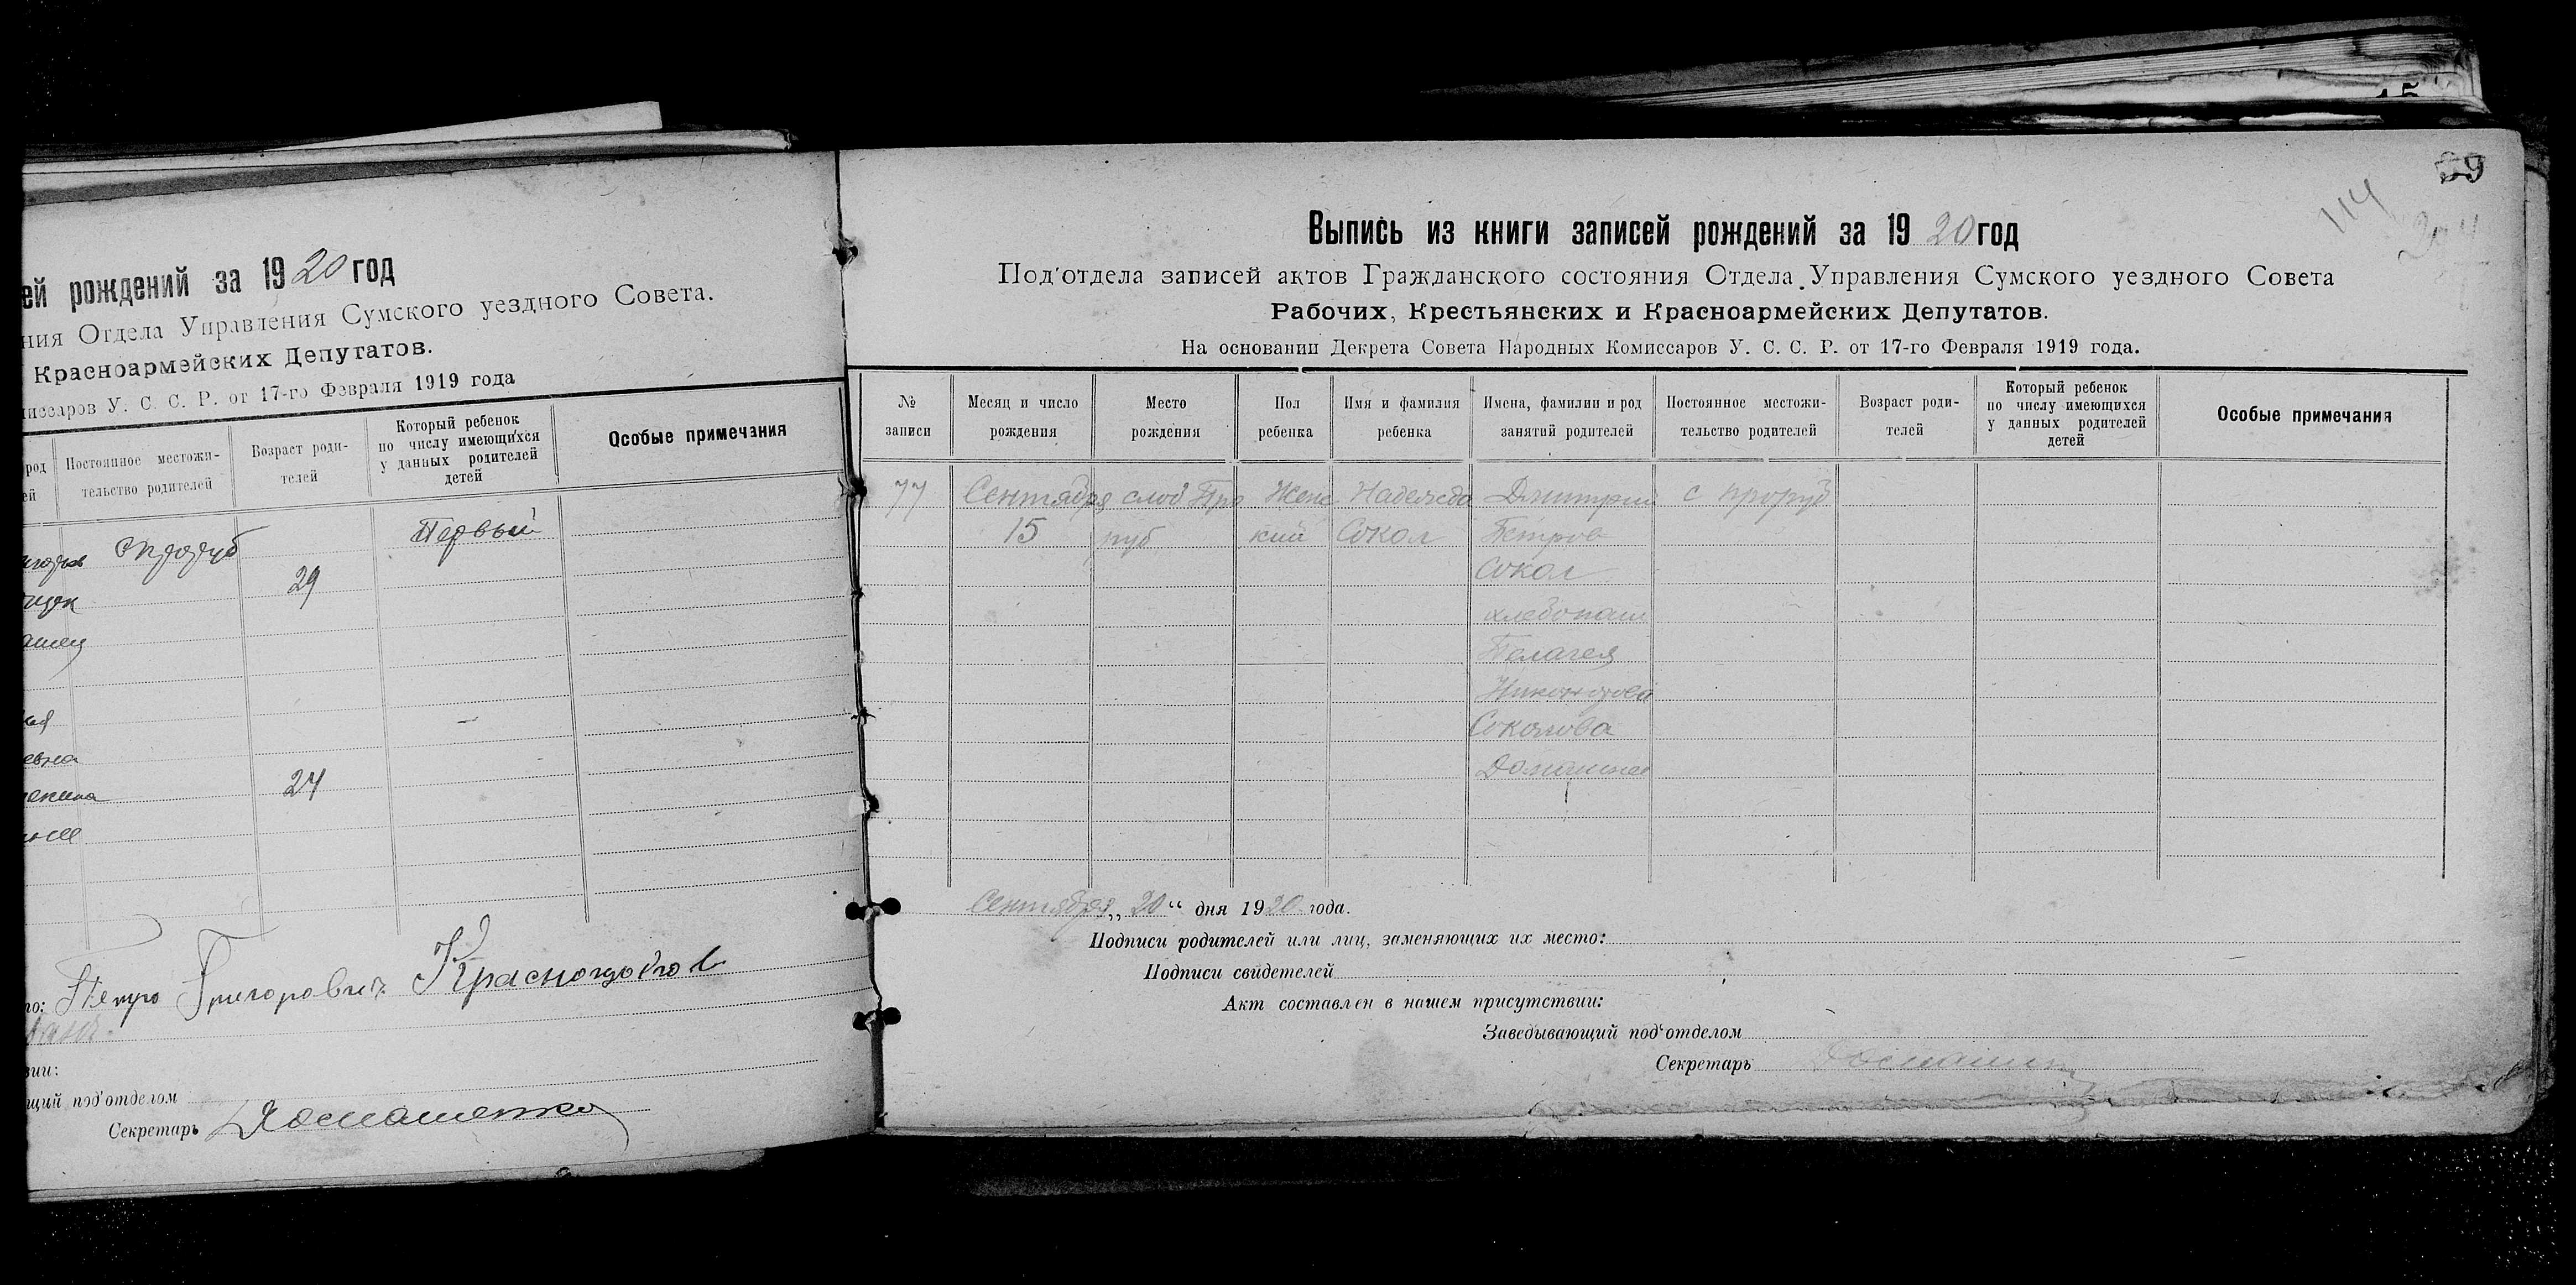 ей рождений за 1920 год
ния Отдела Управления Сумского уездного Совета.
Красноармейских Депутатов.
миссаров У. С. С. Р. от 17-го Февраля 1919 года
род
ей
Постоянное местожи-
тельство родителей
Возраст роди-
телей
Который ребенок
по числу имеющихся
у данных родителей
детей
Особые примечания
Первый
29
24
то: Петро Григорович
щий под'отделом
Секретарь Домашенко
114
Выпись из книги записей рождений за 1920 год
Под'отдела записей актов Гражданского состояния Отдела Управления Сумского уездного Совета
Рабочих, Крестьянских и Красноармейских Депутатов.
На основании Декрета Совета Народных Комиссаров У. С. С. Р. от 17-го Февраля 1919 года.
№
записи
Месяц и число
рождения
Место
рождения
Пол
ребенка
Имя и фамилия
ребенка
Имена, фамилии и род
занятий родителей
Постоянное местожи-
тельство родителей
Возраст роди-
телей
Который ребенок
по числу имеющихся
у данных родителей
детей
Особые примечания
77 Сентября слоб Про Женс Надежда Дмитрий с Проруб
15 руб кий Сокол Петров
Сокол
хлебопаш
Пелагея
Соколова
Сентября „20“ дня 1920 года.
Подписи родителей или лиц, заменяющих их место:
Подписи свидетелей
Акт составлен в нашем присутствии:
Заведывающий под'отделом
Секретарь